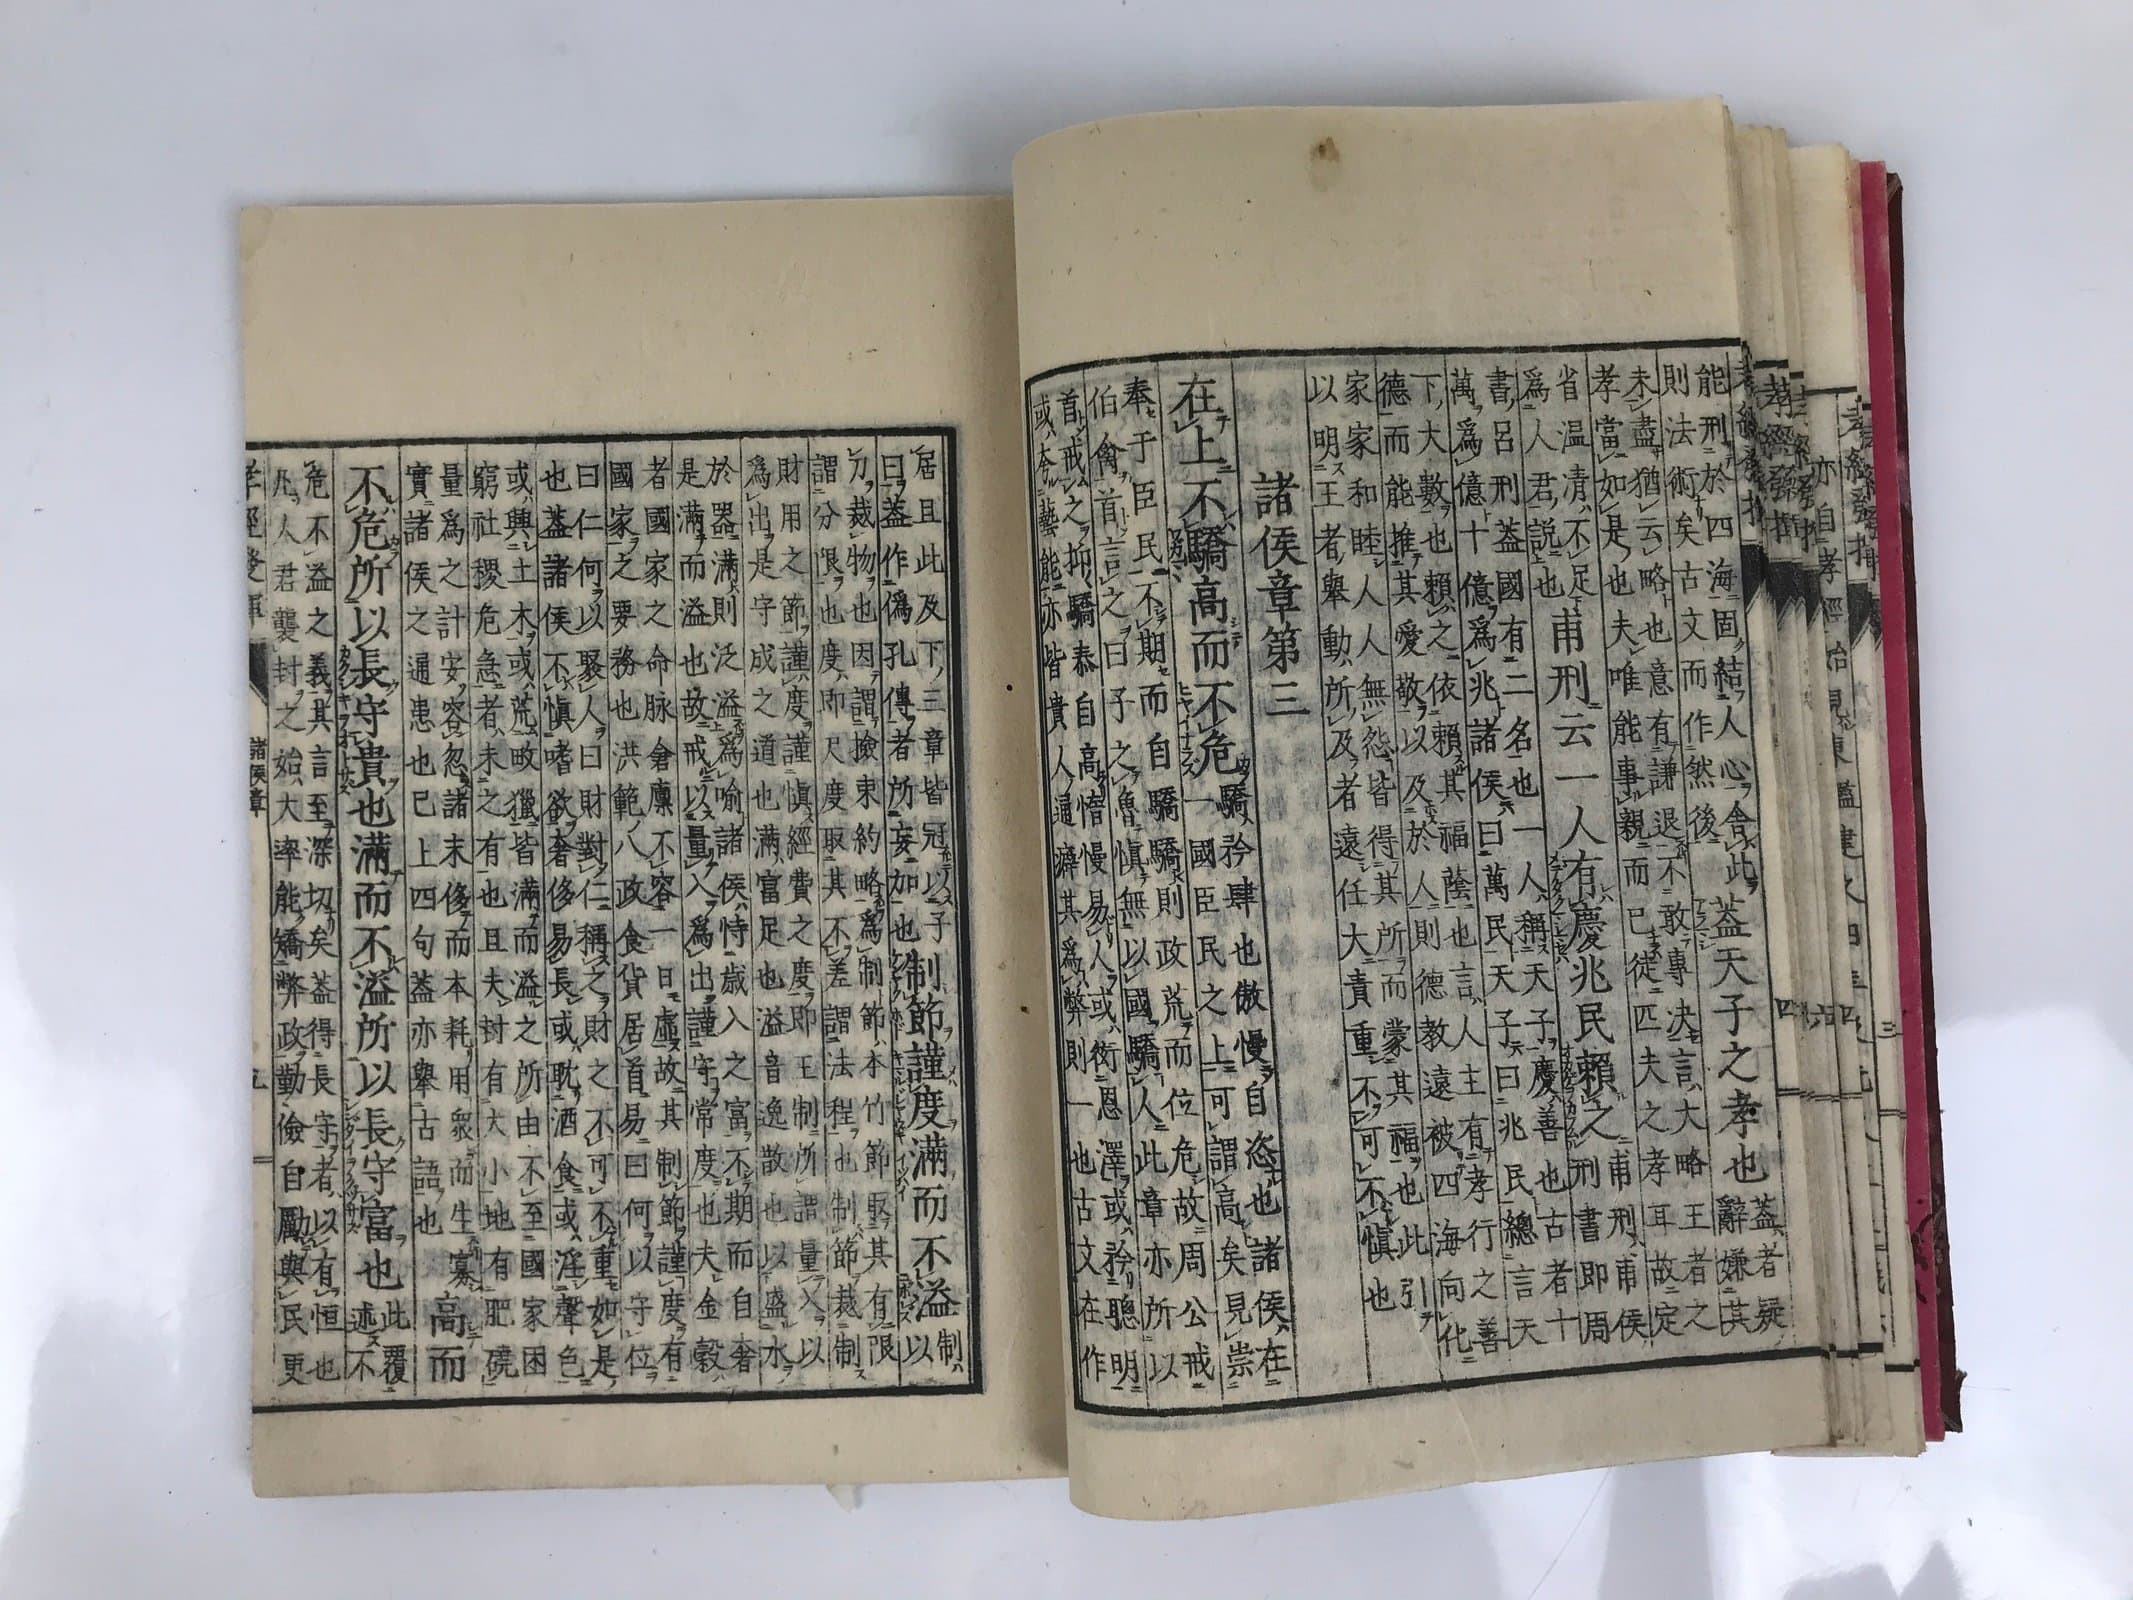 能刑於四海固結人心舍此
則法術矣古文而作然後
蓋天子之孝也
蓋者疑
辭嫌其
未盡猶云略也意有謙退不敢專決言大略王者之
孝當如是也夫唯能事親而已徒匹夫之孝耳故定
省温清不足
爲人君說也
甫刑云一人有慶兆民賴之
甫刑甫侯
刑書即周
書呂刑蓋國有二名也一人稱天子慶善也古者十
萬爲億十億爲兆諸侯曰萬民天子曰兆民總言天
下大數也賴之依賴其福蔭也言人主有孝行之善
德而能推其愛敬以及於人則德教遠被四海向化
家家和睦人人無怨皆得其所而蒙其福也此引
以明王者舉動所及者遠任大責重不可不慎也
諸侯章第三
在上不驕高而不危
驕矜肆也傲慢自恣也諸侯在
一國臣民之上可謂高矣見崇
奉于臣民不期而自驕驕則政荒而位危故周公戒
伯禽首言之曰子之魯慎無以國驕人此章亦所以
首戒之抑驕泰自高惰慢易人或衒恩澤或矜聰明
或夸藝能亦皆貴人通癖其爲弊則一也古文在作
居且此及下三章皆冠以子
曰蓋作僞孔傳者所妄加也
制節謹度滿而不溢
制
以
刀裁物也因謂撿束約略爲制節本竹節取其有限
謂分限也度即尺度取其不差謂法程也制節裁制
財用之節謹度謹慎經費之度即王制所謂量入以
爲出是守成之道也滿富足也溢音逸散也以盛水
於器滿則泛溢爲喻諸侯恃歲入之富不期而自奢
是滿而溢也故戒以量入爲出謹守常度也夫金穀
者國家之命脉倉廩不容一日虛故其制節謹度有
國家之要務也洪範八政食貨居首易曰何以守位
曰仁何以聚人曰財對仁稱之財之不可不重如是
也蓋諸侯不慎嗜欲奢侈易長或耽酒食或淫聲色
或興土木或荒畋獵皆滿而溢之所由不至國家困
窮社稷危急者未之有也且夫封有大小地有肥磽
量爲之計安容忽諸末侈而本耗用衆而生寡
實諸侯之通患也已上四句蓋亦舉古語也
高而
不危所以長守貴也滿而不溢所以長守富也
此覆
述不
危不溢之義其言至深切矣蓋得長守者以有恒也
凡人君襲封之始大率能矯弊政勤儉自勵與民更
孝經發揮 諸侯章 五